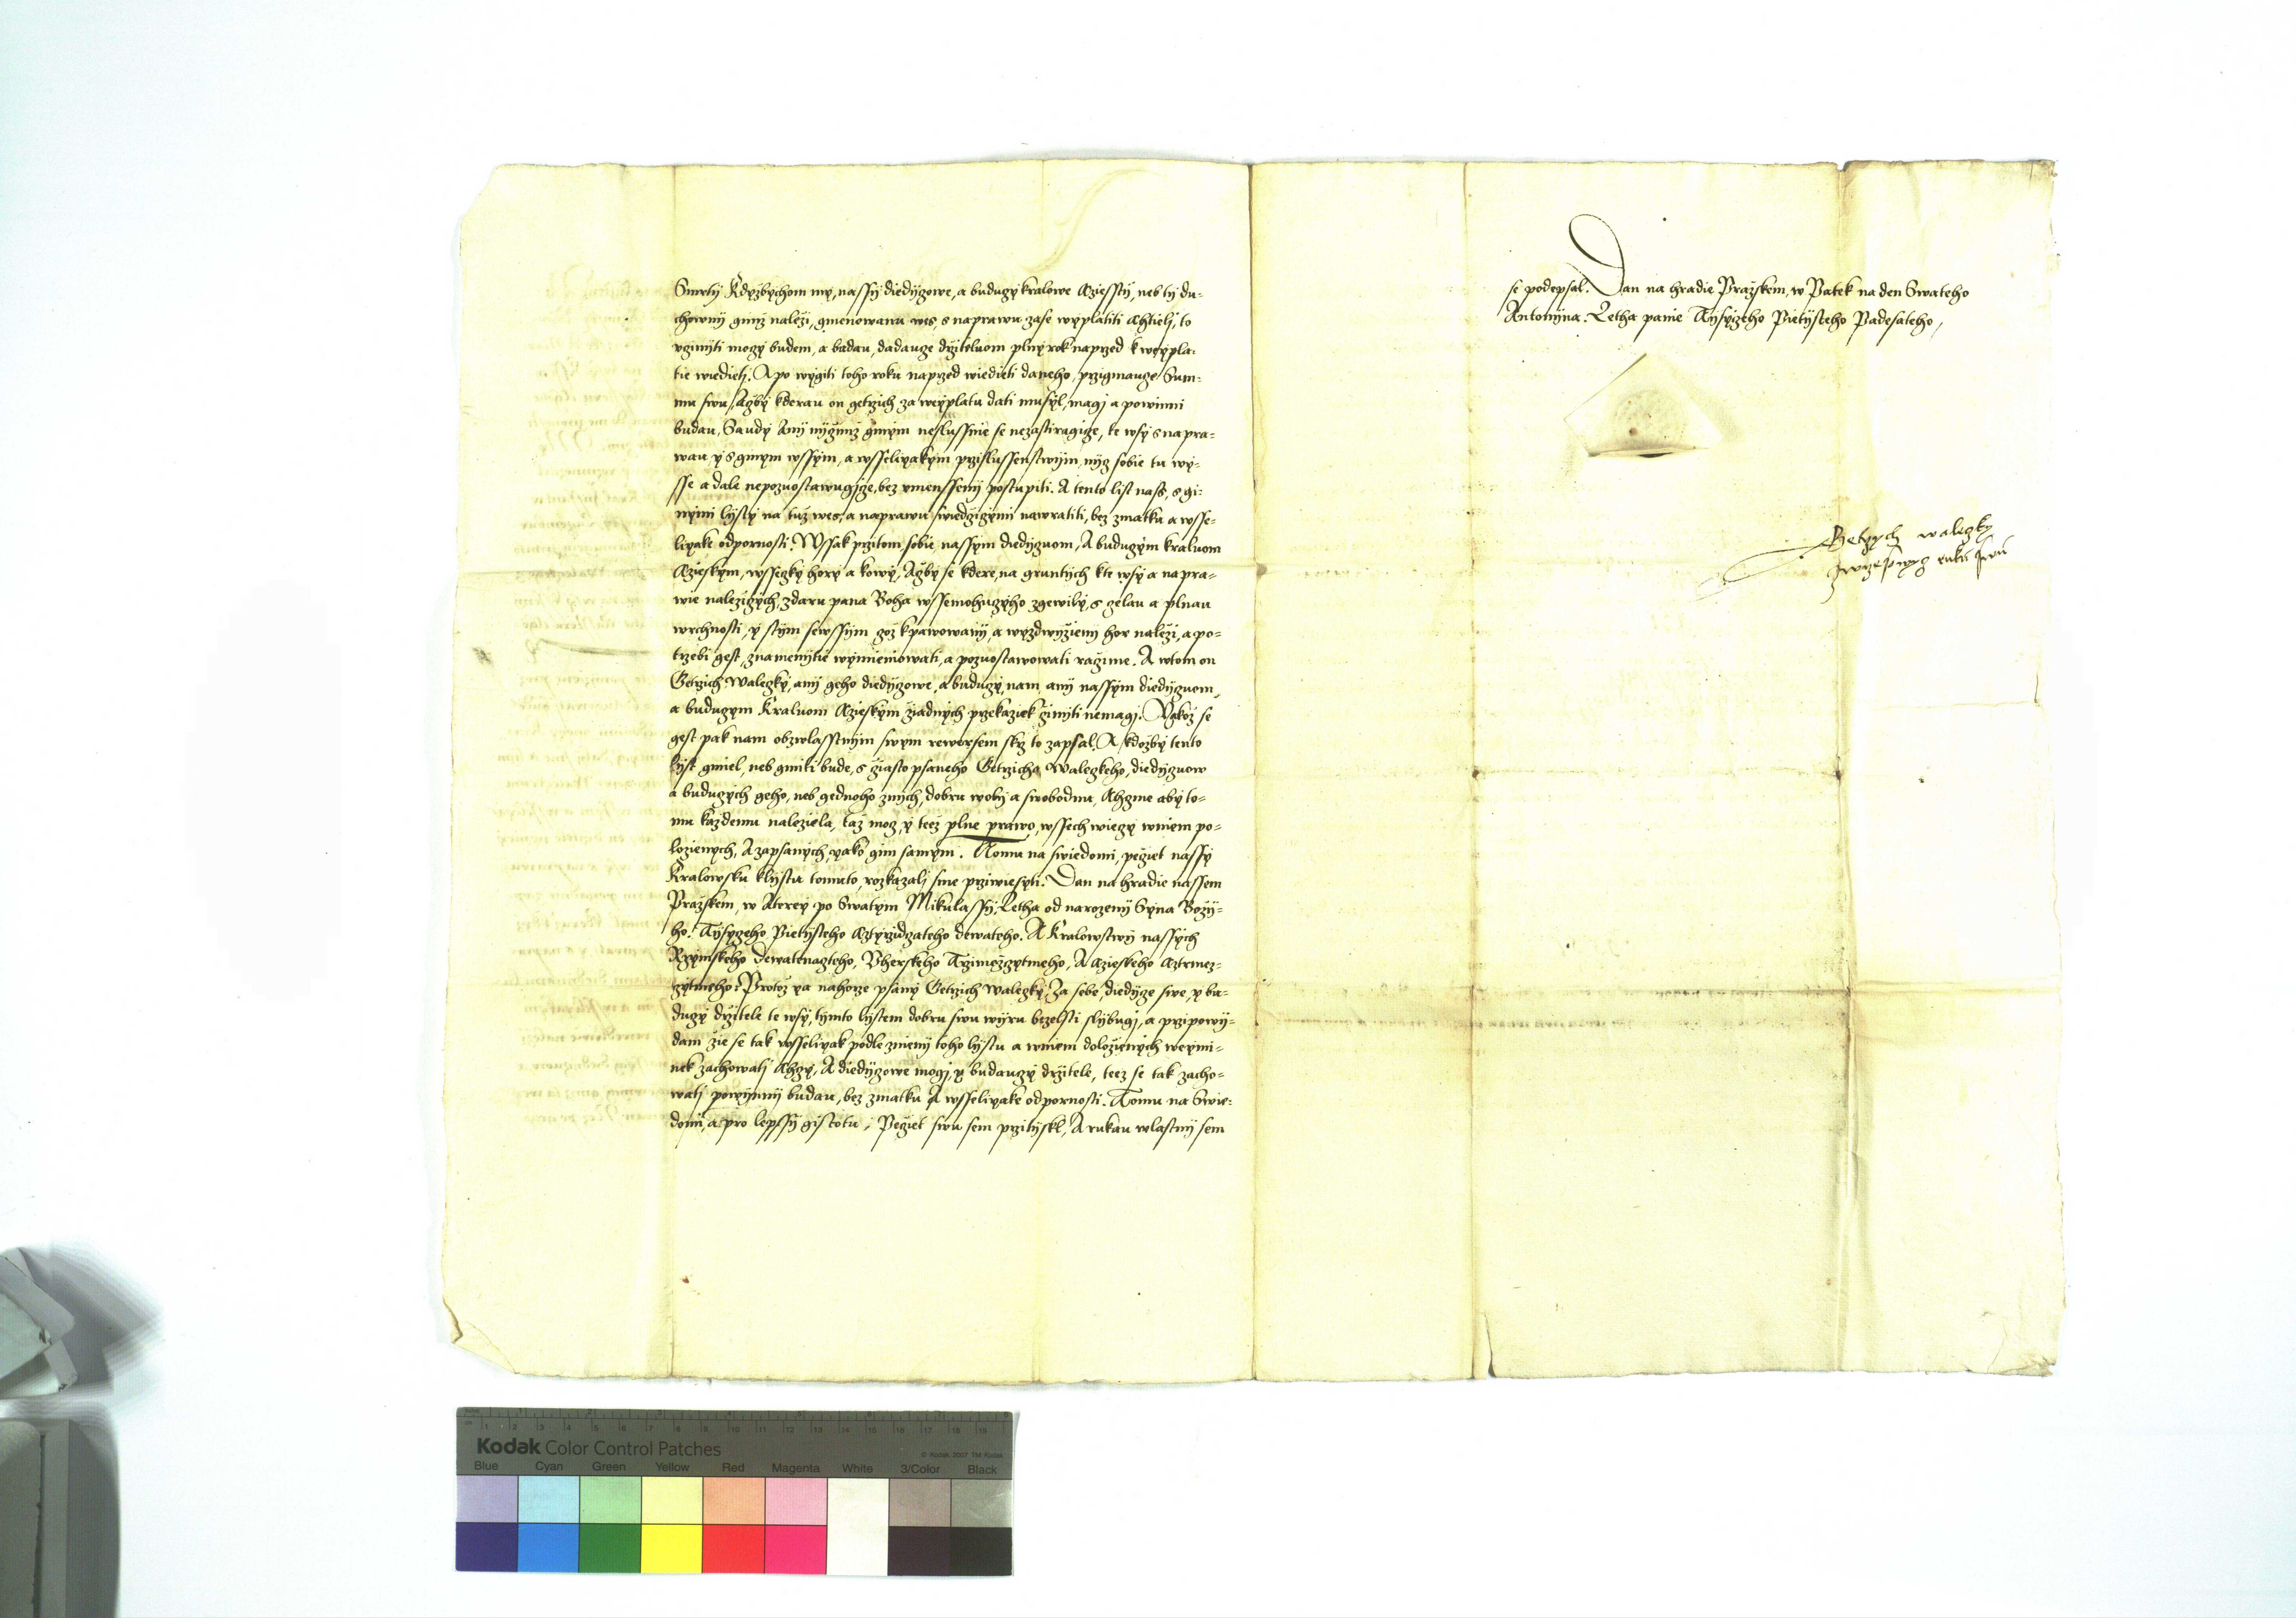 Smrti Kdyžbychom my, nassy diediczowe, a budauczy kralowe Czesstij, neb ty du-
chowny gimž naleži, gmenowanu wes, s naprawu zase wyplatiti chtieli, to
ucziniti moczy budem, a budau, dadaucze držiteluom plny rok naprzed k weypla-
tie wiedieti. A po wygiti toho roku naprzed wiedieti daneho, przigmaucze Sum-
mu swu, Ačby kderau on Getrzich za weyplatu dati musyl, magi a powinni
budau, Saudy Any nyčimž ginym neslussnie se nezastiragicze, te wsy s napra-
wau y s ginym wssym, a wsselikakym przislussenstwijm nycz sobie tu wy-
sse a dale nepozuostawugicze, bez umenssenij postupiti. A tento list nass, s gi-
nymi listy na tuž wes, a naprawu swiedčiczymi nawratiti, bez zmatku a wsse-
likake odpornosti. Wssak przitom sobie, nassym diediczuom, A buduczym kraluom
Czieskym, wsseczky hory a kowy, Ačby se kdere, na gruntech kte wsy a napra-
wie naležiczych, z daru pana Boha wssemohuczyho zgewily, s czelau a plnau
wrchnosti, y s tym sewssym, což k prawowanij, a wyzdwyženij hor naleži, a po-
trzebi gest, znamenitie wymieniowati, a pozuostawowati račime. A w tom on
Getrzich Walczky, any geho diediczowe, a buduczy, nam any nassym diediczuom,
a buduczym Kraluom Czieskym žiadnych przekaziek činiti nemagi. Yakož se
gest pak nam obzwlasstnijm swym rewersem skrz to zapsal. A kdožby tento
lyst gmiel, neb gmiti bude, s často psaneho Getrzicha Walczkeho, diediczuow
a buduczych geho, neb gednoho z nich, dobru woly a swobodnu, Chczme aby to-
mu každemu naležiela, taž mocz, y teež plne prawo, wssech wieczy w niem po-
loženych, A zapsanych, yako gim samym. Tomu na swiedomi, peczet nassy
Kralowsku k lystu tomuto, rozkazali sme przywiesyti. Dan na hradie nassem
Pražskem, w Uterey po Swatym Mikulassy, Letha od narozeny Syna Božy-
ho. Tisyczeho Pietysteho Cztyrzidczateho dewateho. A Kralowstwy nassych
Rzymskeho dewatenacteho, Uherskeho Trzimeczytmeho, A Czieskeho Cztrmecz-
czytmeho. Protož ya nahorze psany Getrzich Walczky, Za sebe, diedicze swe, y bu-
duczy držitele te wsy, tymto lystem dobru swu wijru bezelsti slybugi, a przipowij-
dam že se tak wsselikak podle znienij toho lystu a w niem doloženych weymi-
nek zachowati Chczy, A diediczowe mogi, y budauczy držitele, teež se tak zacho-
wati powynny budau, bez zmatku A wsselikake odpornosti. Tomu na Swie-
domi, a pro lepssy gistotu, Peczet swu sem przitiskl, A rukau wlastny sem
se podepsal. Dan na hradie Pražskem, w Patek na den Swateho
Antonyna. Letha panie Tisyczeho Pietysteho Padesateho,
Getrzych walczky
ruku swu